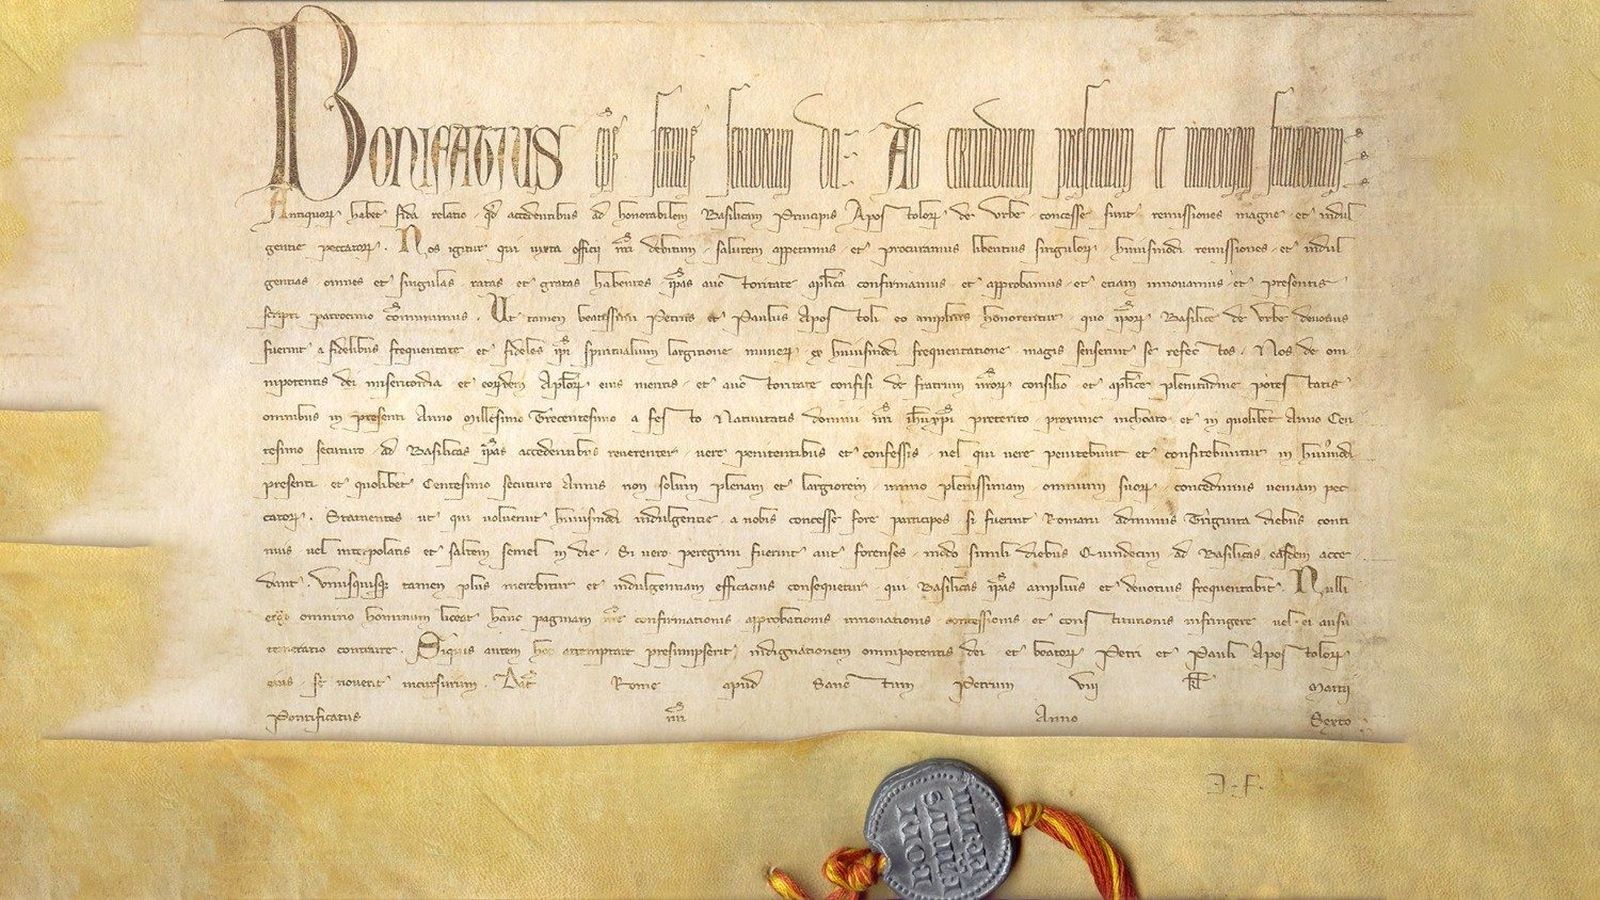 Bonifatius eps servus servorum dei. Ad certitudinem presentium et memoriam futurorum
Antiquorum habet fida relatio qd accedentibus ad honorabilem Basilicam Principis Apostolorum de Urbe concesse sunt remissiones magne et indul
gentie peccatorum. Nos igitur qui iuxta officii nri debitum salutem appetimus et procuramus libentius singulorum huiusmodi remissiones et indul
gentias omnes et singulas ratas et gratas habentes ipsas auctoritate aplica confirmamus et approbamus et etiam innovamus et presentis
scripti patrocinio communimus. Ut tamen beatissimi Petrus et Paulus Apostoli eo amplius honorentur quo ipsorum Basilice de Urbe devotius
fuerint a fidelibus frequentate et fideles ipsi spiritualium largitione munerum ex huiusmodi frequentatione magis senserint se refectos. Nos de om
nipotentis dei misericordia et eorundem Aplorum eius meritis et auctoritate confisi de fratrum nrorum consilio et aplice plenitudine potestatis
omnibus in presenti Anno Millesimo Trecentesimo a festo Nativitatis domini nri ihu xpi preterito proxime inchoato et in quolibet Anno Cen
tesimo secuturo ad Basilicas ipsas accedentibus reverenter vere penitentibus et confessis vel qui vere penitebunt et confitebuntur in huiusmodi
presenti et quolibet Centesimo secuturo Annis non solum plenam et largiorem immo plenissimam omnium suorum concedimus veniam pec
catorum. Statuentes ut qui voluerint huiusmodi indulgentie a nobis concesse fore participes si fuerint Romani adminus Triginta diebus conti
nuis vel interpolatis et saltem semel in die. Si vero peregrini fuerint aut forenses modo simili diebus Quindecim ad Basilicas easdem acce
dant. Unusquisque tamen plus merebitur et indulgentiam efficacius consequetur qui Basilicas ipsas amplius et devotius frequentabit. Nulli
ergo omnino hominum liceat hanc paginam nre confirmationis approbationis innovationis concessionis et constitutionis infringere vel ei ausu
temerario contraire. Siquis autem hoc attemptare presumpserit indignationem omnipotentis dei et beatorum Petri et Pauli Apostolorum
eius se noverit incursurum. Dat Rome apud Sanctum Petrum viii kl Martii
Pontificatus nri Anno Sexto